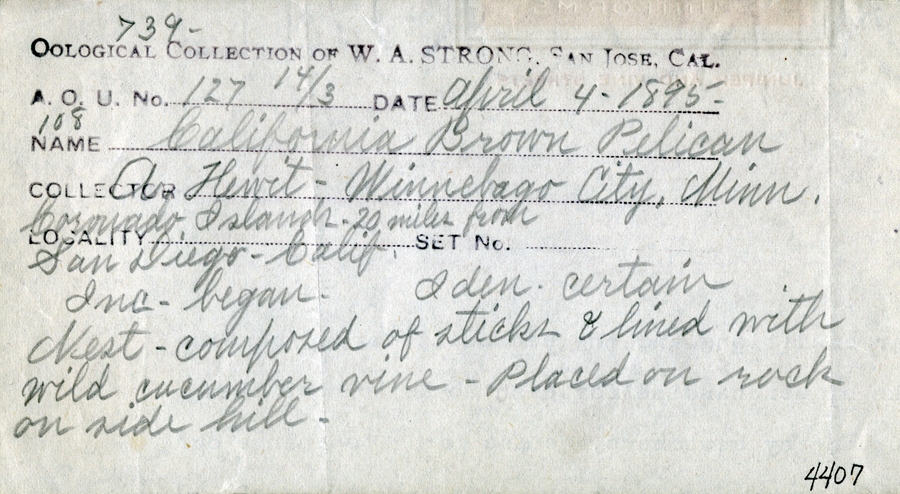 739-
OOLOGICAL COLLECTION OF W. A. STRONG. SAN JOSE, CAL.
A. O. U. No. 127 14/3 DATE April 4-1895-
108
NAME California Brown Pelican
COLLECTOR A. Hewit - Winnebago City, Minn.
Coronado Islands - 20 miles from
LOCALITY SET No.
San Diego - Calif.
Inc - began - Iden. certain
Nest - composed of sticks & lined with
wild cucumber vine - Placed on rock
on side hill -
4407